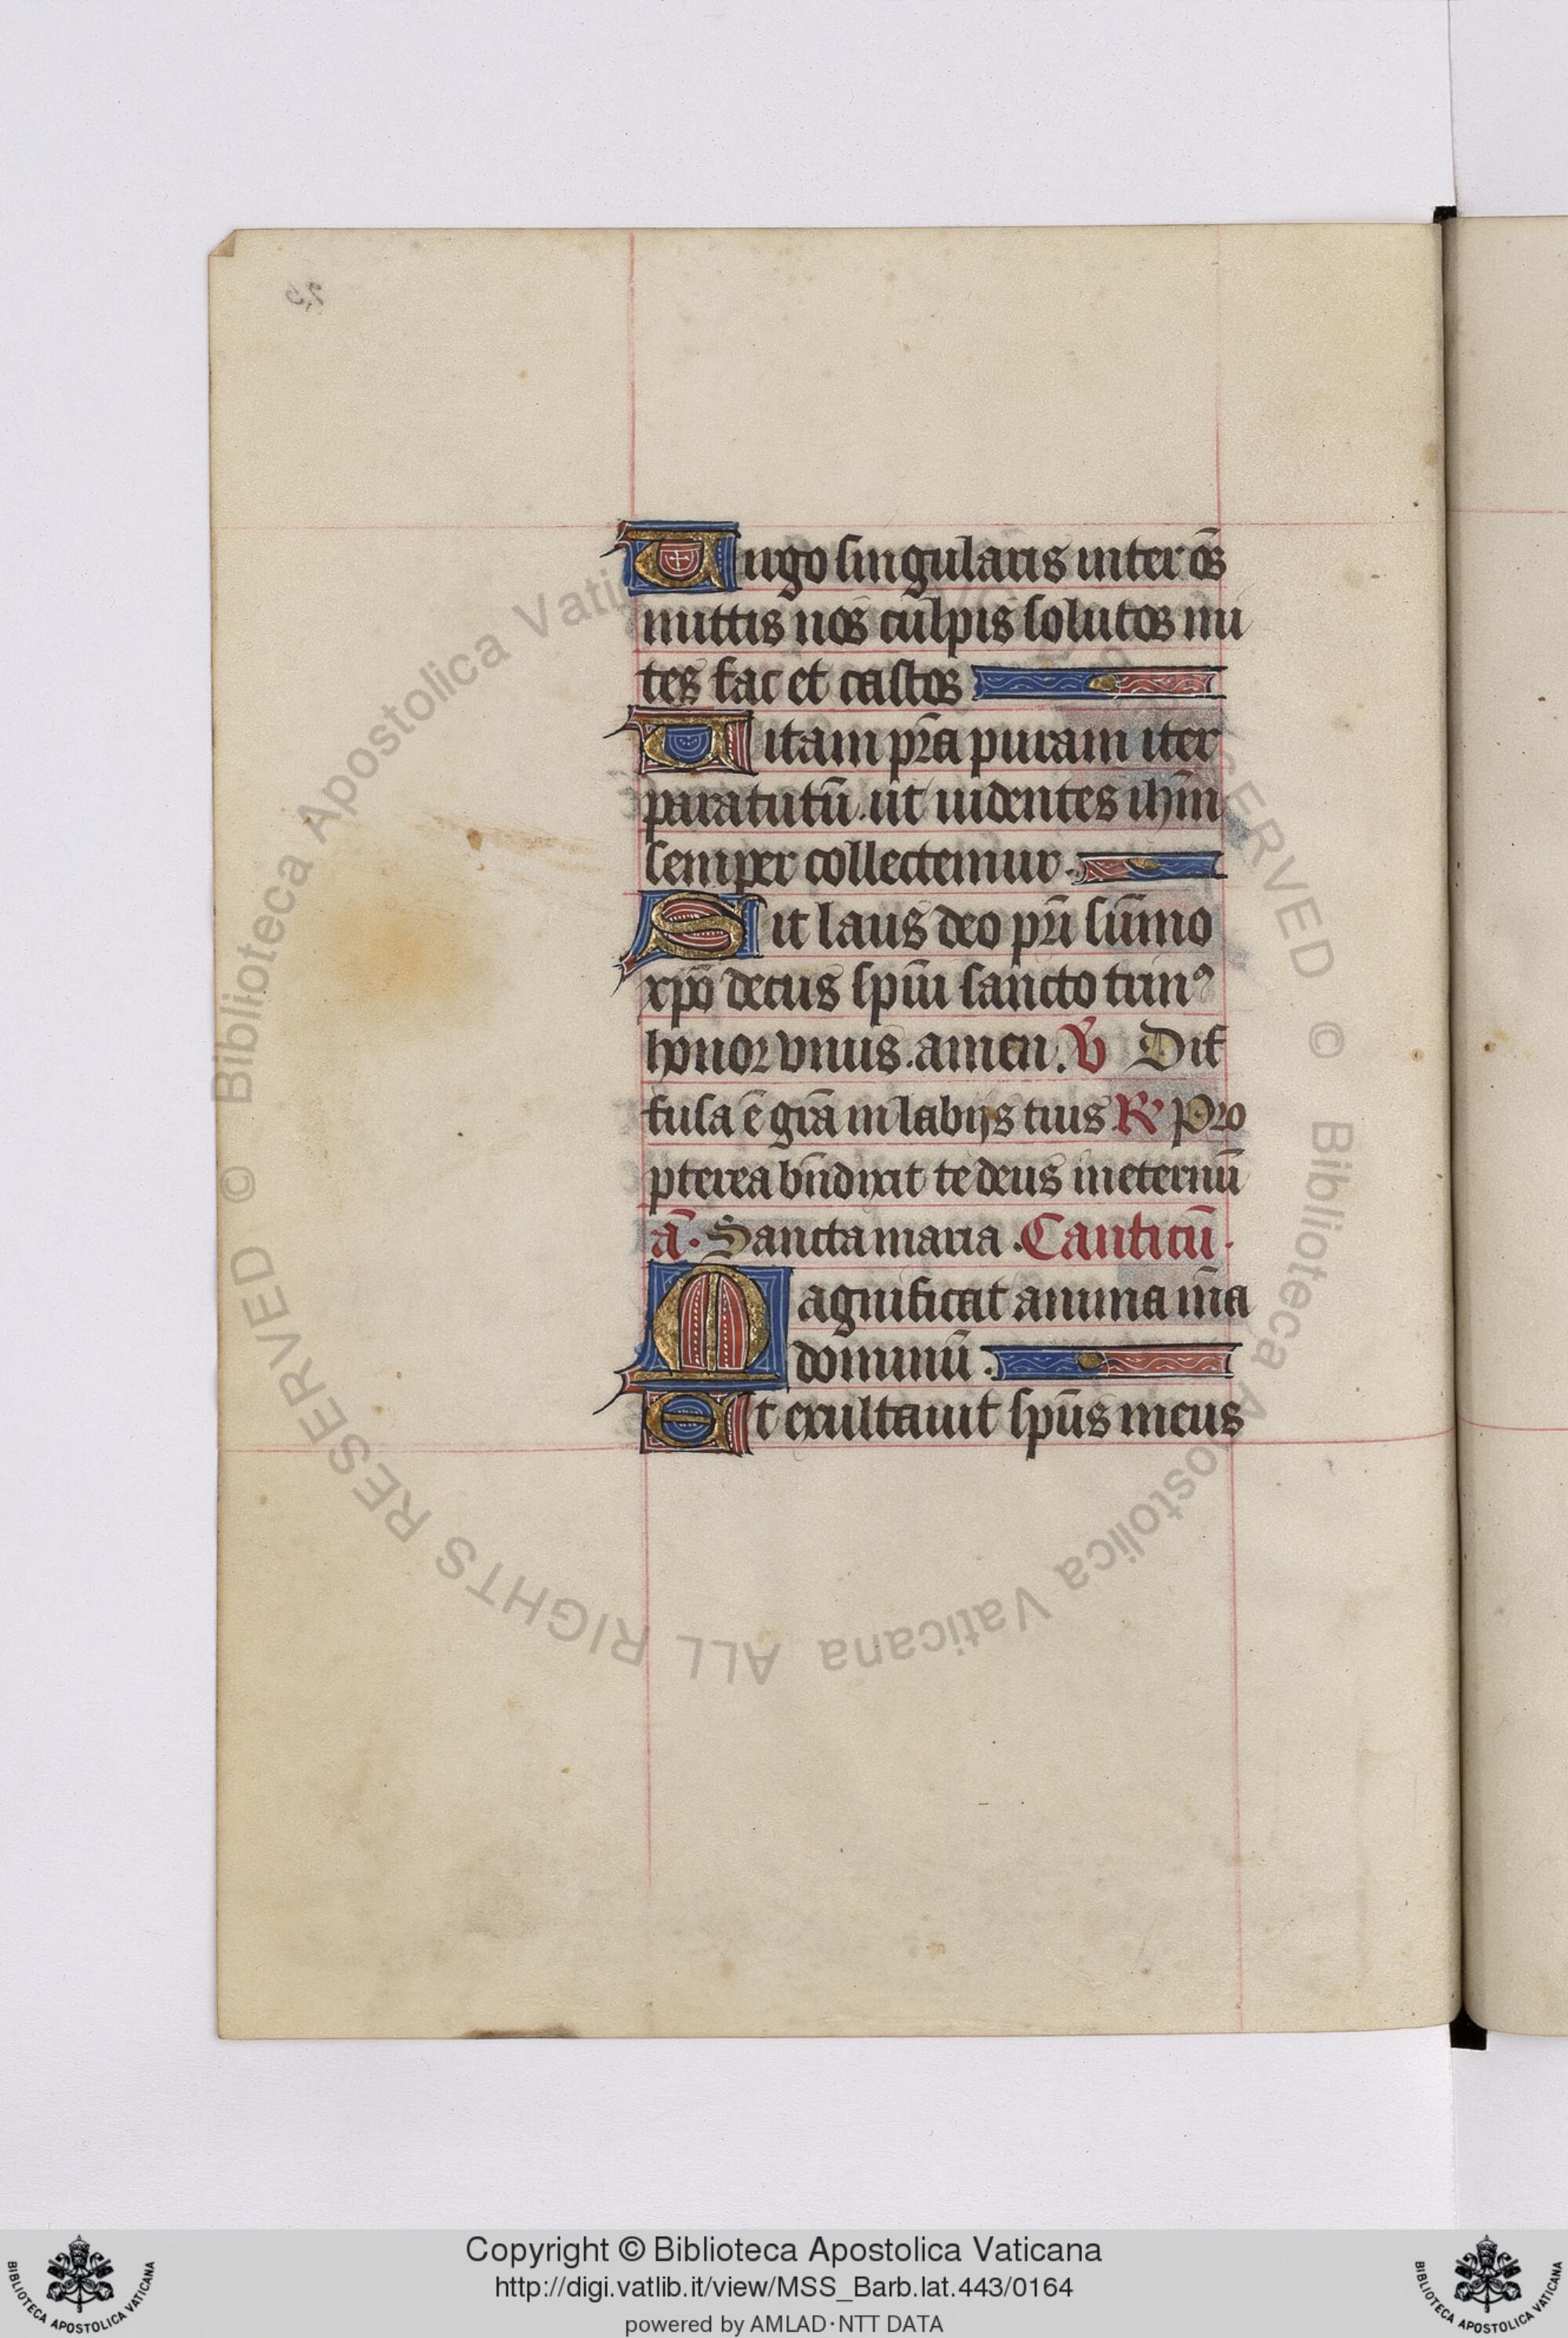 Uirgo singularis inter oēs
mittis nos culpis solutos mi
tes fac et castos
Uitam pr̄a puram iter
para tutū. ut uidentes ihm̄
semper collectemur.
Sit laus deo pr̄i sūmo
xpō decus spūi sancto trinꝰ
honor vnus. amen. V̄ Dif
fusa ē grā in labijs tuis R̄ Pro
pterea bn̄dixit te deus in eternū
ā. Sancta maria. Canticū.
Magnificat anima m̄a
dominū.
Et exultauit spūs meus
© Biblioteca Apostolica Vaticana ALL RIGHTS RESERVED
© Biblioteca Apostolica Vaticana ALL RIGHTS RESERVED
Copyright © Biblioteca Apostolica Vaticana
http://digi.vatlib.it/view/MSS_Barb.lat.443/0164
powered by AMLAD·NTT DATA
BIBLIOTECA APOSTOLICA VATICANA
BIBLIOTECA APOSTOLICA VATICANA